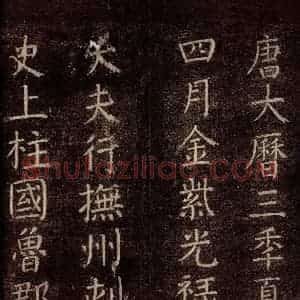 唐大曆三年夏
四月金紫光祿
大夫行撫州刺
史上柱國魯郡
shufaziliao.com